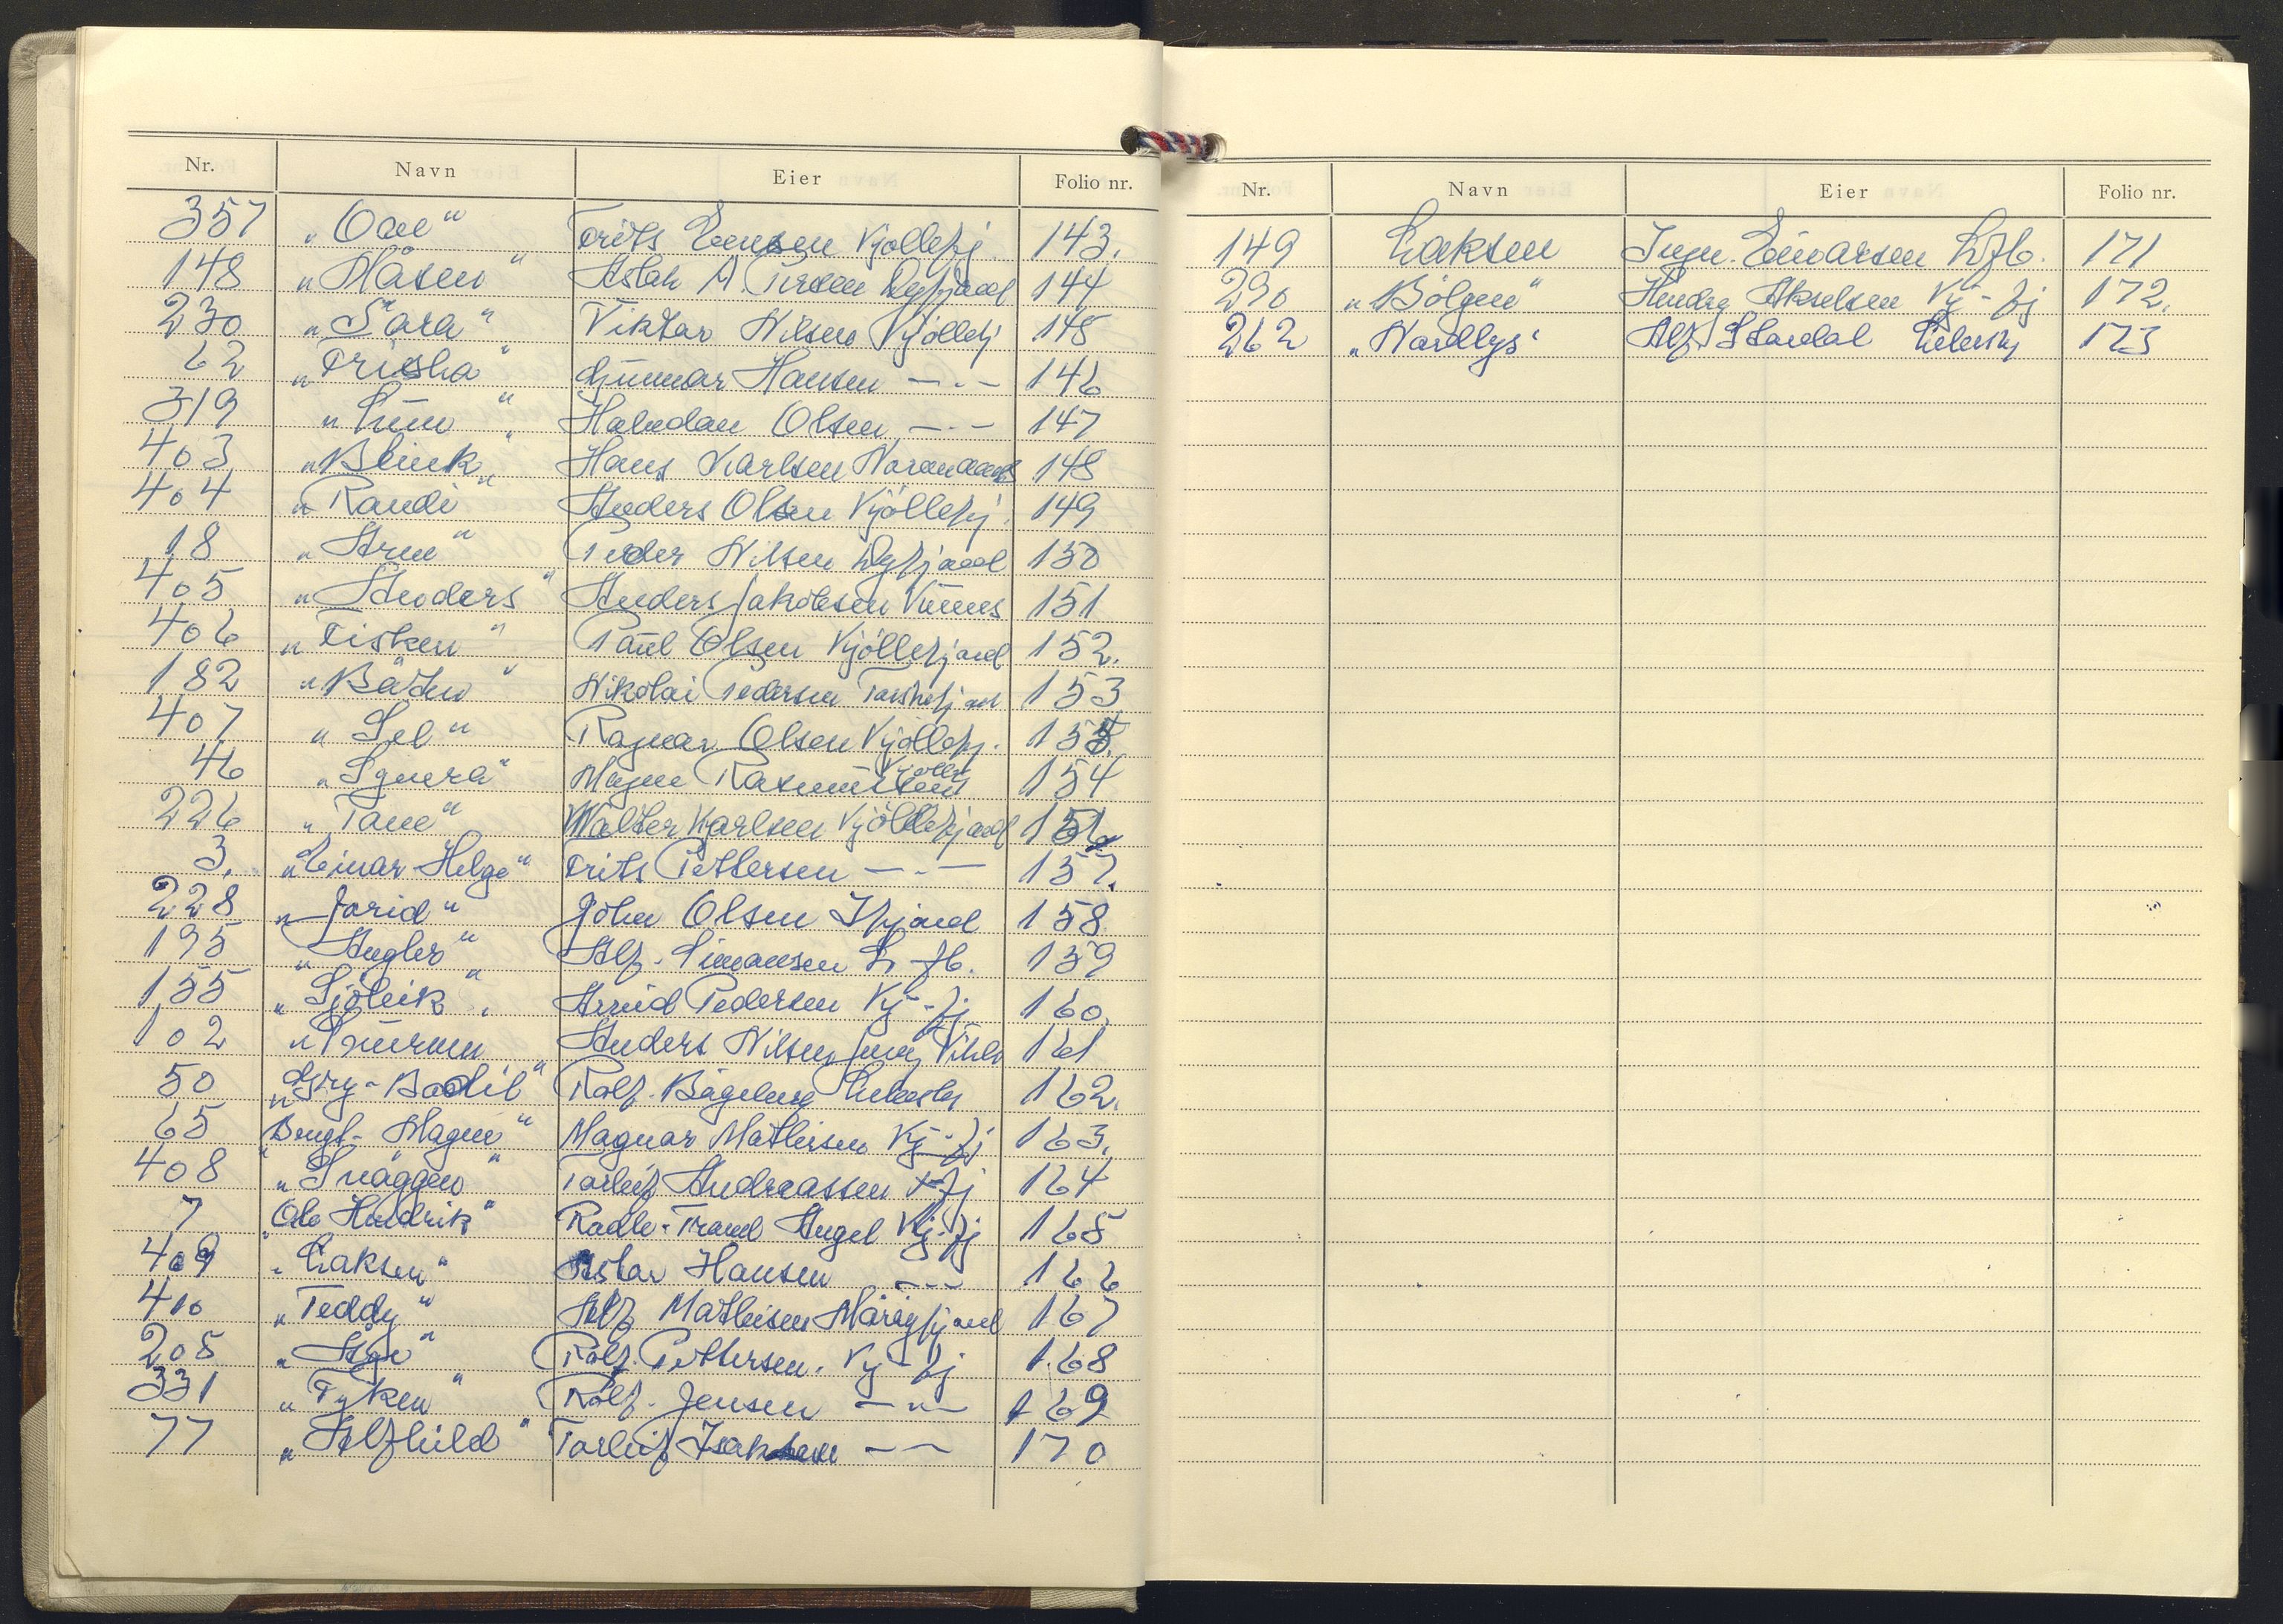 Nr. Navn Eier Folio nr.
357 „Ove" Frits Evensen Kjøllefj 143.
148 „Måsen" Aslak A. Dyfjord 144
230 „Sara" Viktor Nilsen Kjøllefj 145
62 „Friska" Gunnar Hansen —"— 146
319 „ " Halvdan Olsen —"— 147
403 „Blink" Hans Karlsen 148
404 „Randi" Anders Olsen Kjøllefj. 149
18 „Arne" Peder Nilsen Dyfjord 150
405 „Anders" Anders Jakobsen 151
406 „Fisken" Paul Olsen Kjøllefjord 152.
182 „Båtsn" Nikolai Pedersen 153
407 „Sel" Ragnar Olsen Kjøllefj. 155.
46 „ " Magne Rasmussen Kjøllefj 154
226 „Tone" Walter Karlsen Kjøllefjord 156
3. „Einar Helge" Frits Pettersen —"— 157.
228 „Jorid" John Olsen Ifjord 158
195 „Angler" Alf. Simonsen L-fb. 159
155 „Sjøblik" Arvid Pedersen Kj-fj 160.
102 „Snurren" Anders Nilsen 161
50 „Gry-Bodil" Rolf. Lebesby 162.
65 „Bengt-Magne" Magnar Mathisen Kj-fj 163.
408 „Snäggen" Torleif Andreassen Kj-fj 164
7 „Ole Hendrik" Angel Kj-fj 165
409 „Laksen" Hansen —"— 166
410 „Teddy" Alf Mathisen 167
205 „ " Rolf. Pettersen. Kj-fj 168
331 „Tyken" Rolf. Jensen —"— 169
77 „Alfhild" Torleif Isaksen —"— 170
Nr. Navn Eier Folio nr.
149 Laksen Ingv. Eivarsen L.fb. 171
290 „Bølgen" Hendry Akselsen Kj-fj 172.
262 „Nordlys" Alf. Stordal Lebesby 173